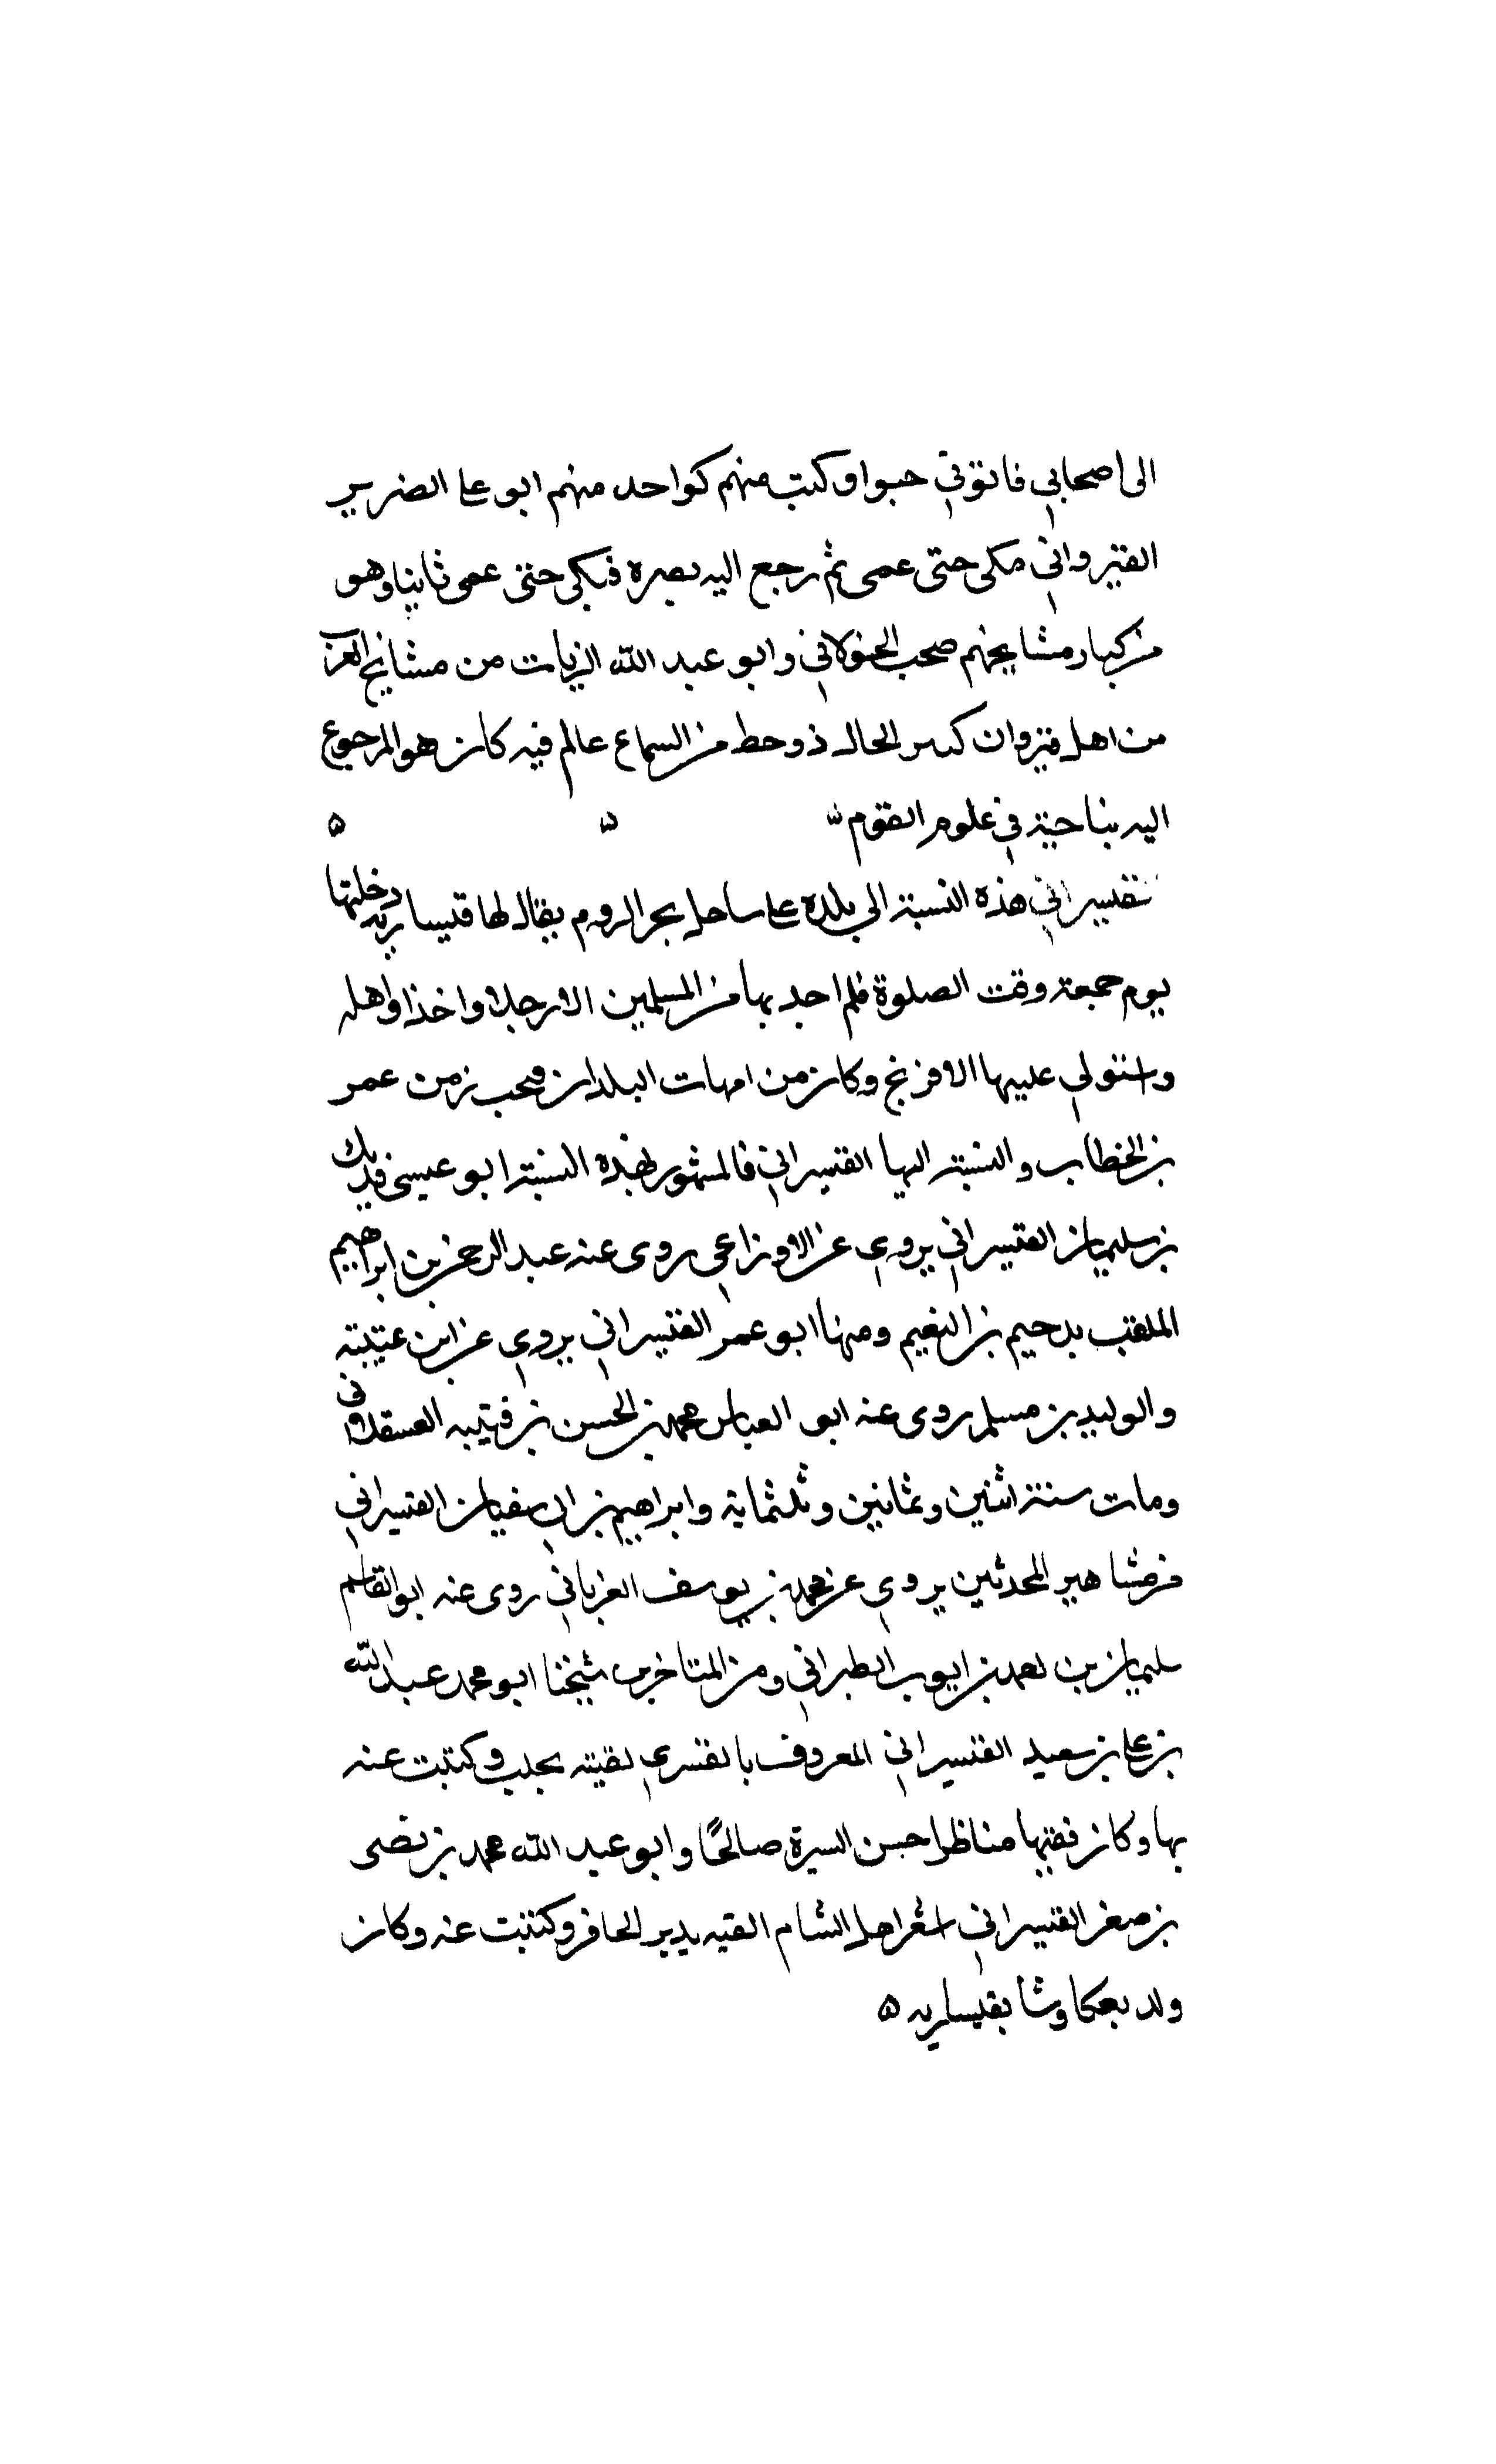 الى اصحابي فاتوني حبوا وكنت منهم كواحد منهم ابو على الضرير
القيرواني مكى حتى عمى ثم رجع اليه بصره فبكى حتى عمى ثانيا وهو
من كبار مشايخهم صحب الخولاني وابو عبد الله الزيات من مشايخ
من اهل قيروان كبير الحال ذو حط من السماع عالم فيه كان هو المرجوع
اليه بناحيته في علوم القوم
القيسراني هذه النسبة الى بلدة على ساحل بحر الروم يقال لها قيسارية دخلتها
يوم جمعة وقت الصلوة فلم اجد بها من المسلمين الا رجلا واخذا واهله
واستولى عليها الافرنج وكان من امهات البلدان فتحب زمن عمر
بن الخطاب والنسبة اليها القيسراني فالمشهور بهذه النسبة ابو عيسى فديك
بن سليمان القيسراني يروي عن الاوزاعي روى عنه عبد الرحمن بن ابراهيم
الملقب بدحيم بن اليتيم ومنها ابو عمر القيسراني يروي عن ابن عيينة
والوليد بن مسلم روى عنه ابو العباس محمد بن الحسن بن قتيبه العسقلاني
ومات سنة اثنين وثمانين وثلثماية وابراهيم بن ابي سفيان القيسراني
من مشاهير المحدثين يروي عن محمد بن يوسف الفريابي روى عنه ابو القاسم
سليمان بن احمد بن ايوب الطبراني ومن المتاخرين شيخنا ابو محمد عبد الله
بن على بن سعيد القيسراني المعروف بالقسري لقيته بحلب وكتبت عنه
بها وكان فقيها مناظرا حسن السيرة صالحًا وابو عبد الله محمد بن نصر
بن صغير القيسراني اشعر اهل الشام لقيته بدير الحافر وكتبت عنه وكان
ولد بعكا ونشا بقيساريه